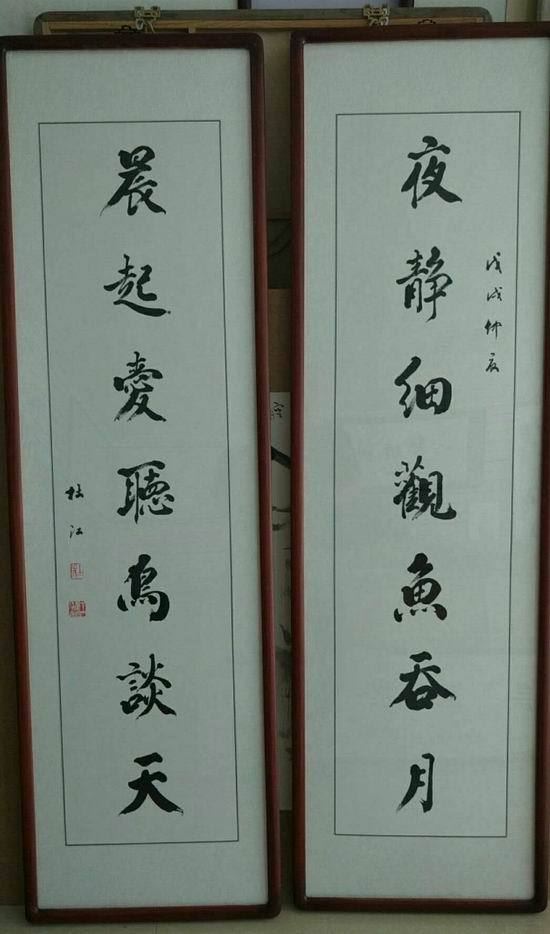 戊戌仲夏
夜静細觀魚吞月
晨起愛聽鳥談天
江